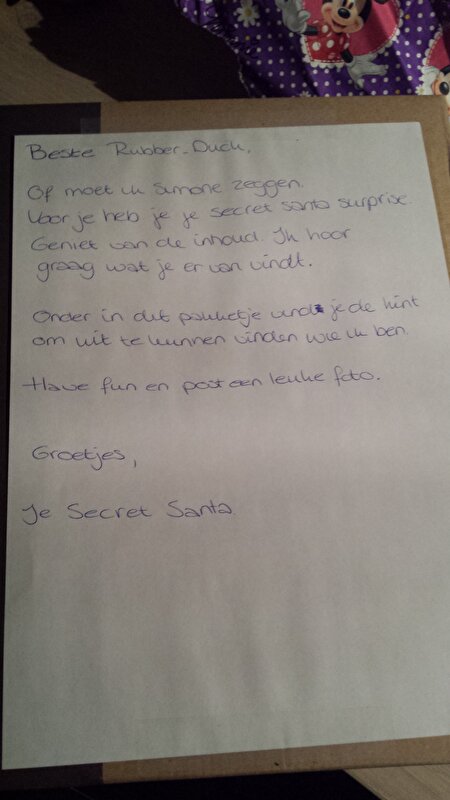 Beste Rubber-Duck,
Of moet ik Simone zeggen.
Voor je heb je je secret santa surprise.
Geniet van de inhoud. Ik hoor
graag wat je ervan vindt.
Onder in dit pakketje vind je de hint
om uit te kunnen vinden wie ik ben.
Have fun en post een leuke foto.
Groetjes,
Je Secret Santa.